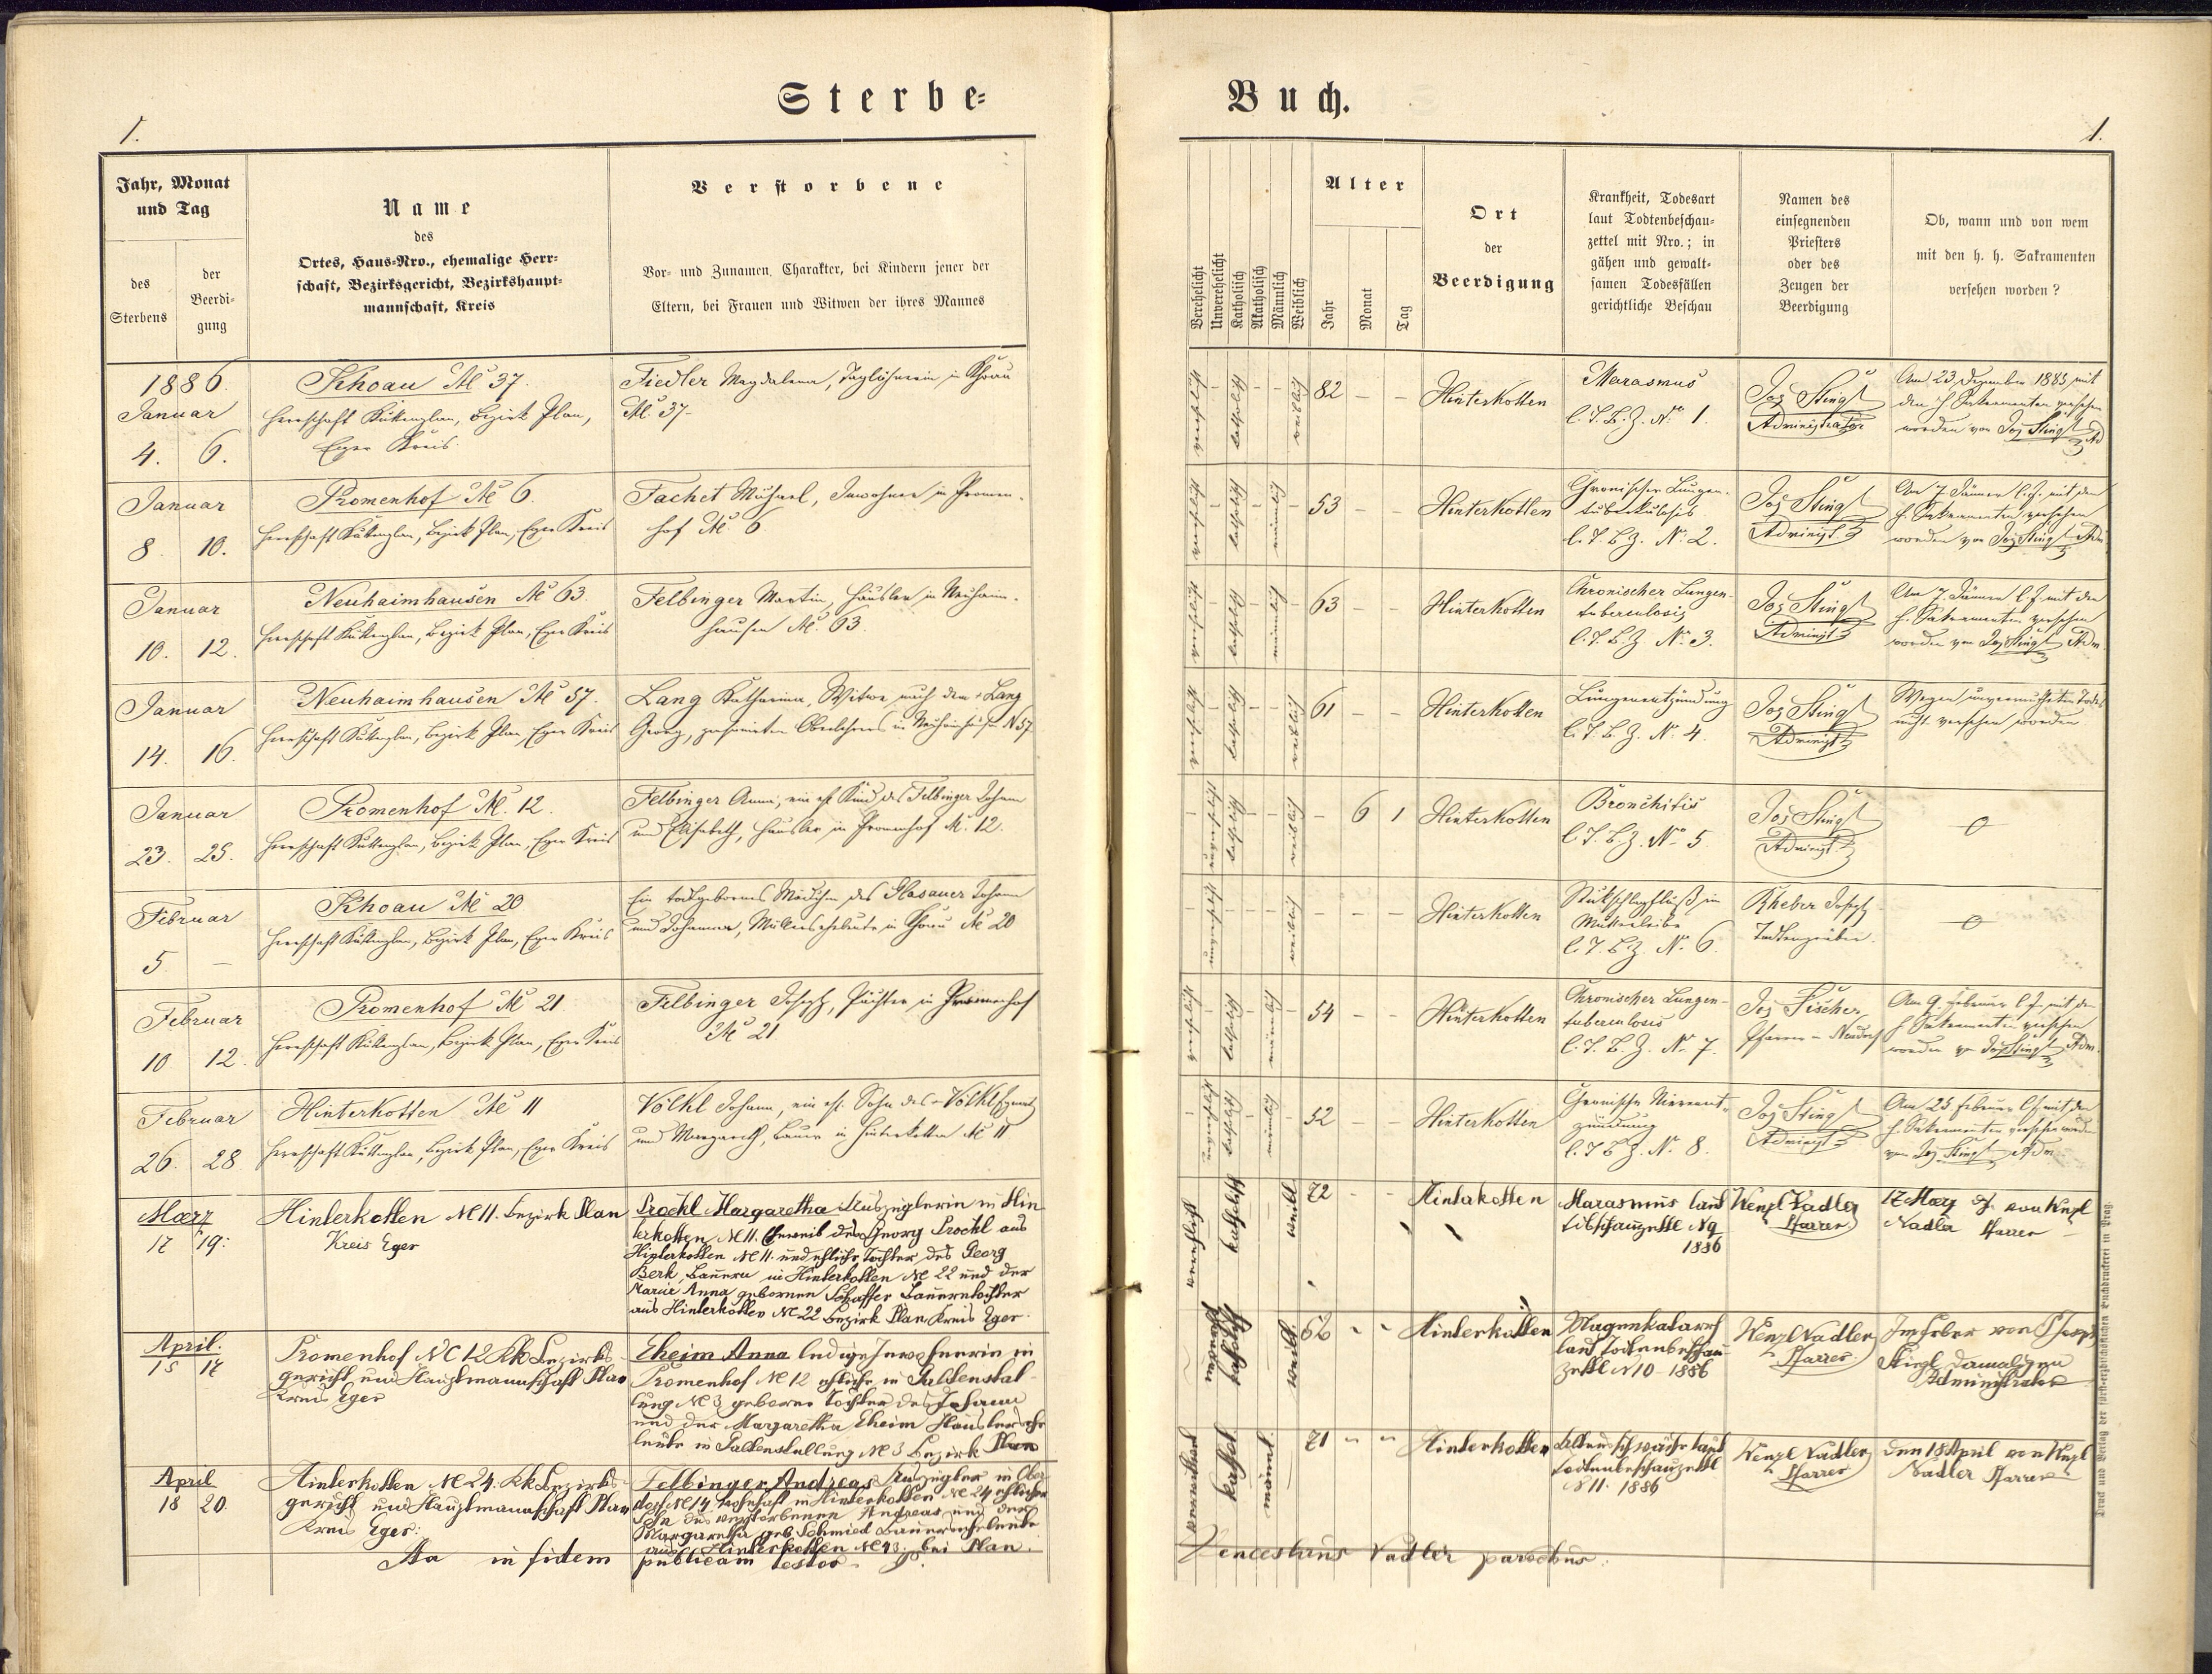 Sterbe=
1.
Jahr, Monat
und Tag
des
Sterbens
der
Beerdi=
gung
Name
des
Ortes, Haus=Nro., ehemalige Herr=
schaft, Bezirksgericht, Bezirkshaupt=
mannschaft, Kreis
Verstorbene
Vor= und Zunamen, Charakter, bei Kindern jener der
Eltern, bei Frauen und Witwen der ihres Mannes
1886.
Januar
4. 6.
Khoau № 37.
Herrschaft Kuttenplan, Bezirk Plan,
Eger Kreis
Fiedler Magdalena, Taglöhnerin in Khoau
№ 37.
Januar
8. 10.
Promenhof № 6.
Herrschaft Kuttenplan, Bezirk Plan, Eger Kreis
Fachet Michael, Inwohner in Promen-
hof № 6
Januar
10. 12.
Neuhaimhausen № 63.
Herrschaft Kuttenplan, Bezirk Plan, Eger Kreis
Felbinger Martin, Häusler in Neuhaim-
hausen № 63.
Januar
14. 16.
Neuhaimhausen № 57.
Herrschaft Kuttenplan, Bezirk Plan, Eger Kreis
Lang Katharina, Witwe nach dem + Lang
Georg, Oberlehrers in Neuhaimhausen N 57
Januar
23. 25.
Promenhof № 12.
Herrschaft Kuttenplan, Bezirk Plan, Eger Kreis
Felbinger Anna, ein ehl. Kind des Felbinger Johann
und Elisabeth, Häusler in Promenhof № 12.
Februar
5. –
Khoau № 20
Herrschaft Kuttenplan, Bezirk Plan, Eger Kreis
Ein todtgebornes Mädchen des Glasauer Johann
und Johanna, Müllerseheleute in Khoau № 20
Februar
10. 12.
Promenhof № 21
Herrschaft Kuttenplan, Bezirk Plan, Eger Kreis
Felbinger Joseph, Pächter in Promenhof
№ 21
Februar
26. 28
Hinterkotten № 11
Herrschaft Kuttenplan, Bezirk Plan, Eger Kreis
Völkl Johann, ein ehl. Sohn des Völkl
und Margareth, Bauer in Hinterkotten № 11
Maerz
17 19:
Hinterkotten № 11. Bezirk Plan
Kreis Eger
Prockl Margaretha Auszüglerin in Hin
terkotten № 11. Eheweib des Georg Prockl aus
Hinterkotten № 11. und ehliche Tochter des Georg
Berk, Bauern in Hinterkotten № 22 und der
Maria Anna gebornen Schaffer Bauerntochter
aus Hinterkotten № 22 Bezirk Plan Kreis Eger.
April.
15 17
Promenhof № 12 kk Bezirks-
gericht und Hauptmannschaft Plan
Kreis Eger
Eheim Anna ledige Inwohnerin in
Promenhof № 12 eheliche in
№ 3 geborne Tochter des Johann
und der Margaretha Eheim Häuslersehe
leute in № 3 Bezirk Plan
April
18 20.
Hinterkotten № 24. kk Bezirks-
gericht und Hauptmannschaft Plan
Kreis Eger:
Felbinger Andreas Auszügler in Ober
dorf № 14 wohnhaft in Hinterkotten № 24 ehlicher
Sohn des verstorbenen Andreas und der
Margaretha geb Schmied Bauerseheleute
aus Hinterkotten № 13. bei Plan.
Ita in fidem publicam testor
Buch.
1.
Verehelicht
Unverehelicht
Katholisch
Akatholisch
Männlich
Weiblich
Alter
Jahr
Monat
Tag
Ort
der
Beerdigung
Krankheit, Todesart
laut Todtenbeschau=
zettel mit Nro.; in
gähen und gewalt=
samen Todesfällen
gerichtliche Beschau
Namen des
einsegnenden
Priesters
oder des
Zeugen der
Beerdigung
Ob, wann und von wem
mit den h. h. Sakramenten
versehen worden?
verehelicht – katholisch – – weiblich 82 – –
Hinterkotten
Marasmus
l. T. B. Z. No 1.
Jos Stingl
Administrator
Am 23 Dezember 1885 mit
den h Sakramenten versehen
worden von Jos Stingl Ad
verehelicht – katholisch – männlich – 53 – –
Hinterkotten
Chronischer Lungen-
tuberkulosis
l. T. B. Z. No 2.
Jos Stingl
Administ.
Am 7 Jänner l. J. mit den
h. Sakramenten versehen
worden von Jos Stingl Adm.
verehelicht – katholisch – männlich – 63 – –
Hinterkotten
Chronischer Lungen-
tuberculosis
l. T. B. Z. No 3.
Jos Stingl
Administ
Am 7. Jänner l. J. mit den
h. Sakramenten versehen
worden von Jos Stingl Adm.
verehelicht – katholisch – – weiblich 61 – –
Hinterkotten
Lungenentzündung
l. T. B. Z. No 4.
Jos Stingl
Administ
Wegen unvermutheten Todes
nicht versehen worden.
– unverehelicht katholisch – – weiblich – 6 1
Hinterkotten
Bronchitis
l. T. B. Z. No 5.
Jos Stingl
Administ.
–0–
– unverehelicht – – – weiblich – – –
Hinterkotten
Stickschlagfluß im
Mutterleibe
l. T. B. Z. No 6.
Rheber Joseph
Todtengräber.
–0–
verehelicht – katholisch – männlich – 54 – –
Hinterkotten
Chronischer Lungen-
tuberculosis
l. T. B. Z. No 7.
Jos Fischer
Pfarrer – Neudorf
Am 9. Februar l. J. mit den
h Sakramenten versehen
worden von Jos Stingl Adm.
– unverehelicht katholisch – männlich – 52 – –
Hinterkotten
Chronische Nierenent-
zündung
l. T. B. Z. No 8.
Jos Stingl
Administ
Am 25 Februar l J mit den
h. Sakramenten versehen worden
von Jos Stingl Adm
verehelicht katholisch weibl 72 – –
Hinterkotten
Marasmus laut
Tdtschauzettl N 9
1886
Wenzl Nadler
Pfarrer
17 Maerz J. von Wenzl
Nadler Pfarrer
unverehl katholisch weibl. 62 " "
Hinterkotten
Magenkatarrh
laut Todtenbeschau-
zettl N 10 1886
Wenzl Nadler
Pfarrer
von Joseph
Stingl damaligen
Administrator
katholl männl. 71 " "
Hinterkotten
Altersschwäche laut
Todtenbeschauzettl
N 11. 1886
Wenzl Nadler
Pfarrer
den 18 April von Wenzl
Nadler Pfarrer
Wenceslaus Nadler parochus.
Druck und Verlag der fürst-erzbischöflichen Buchdruckerei in Prag.